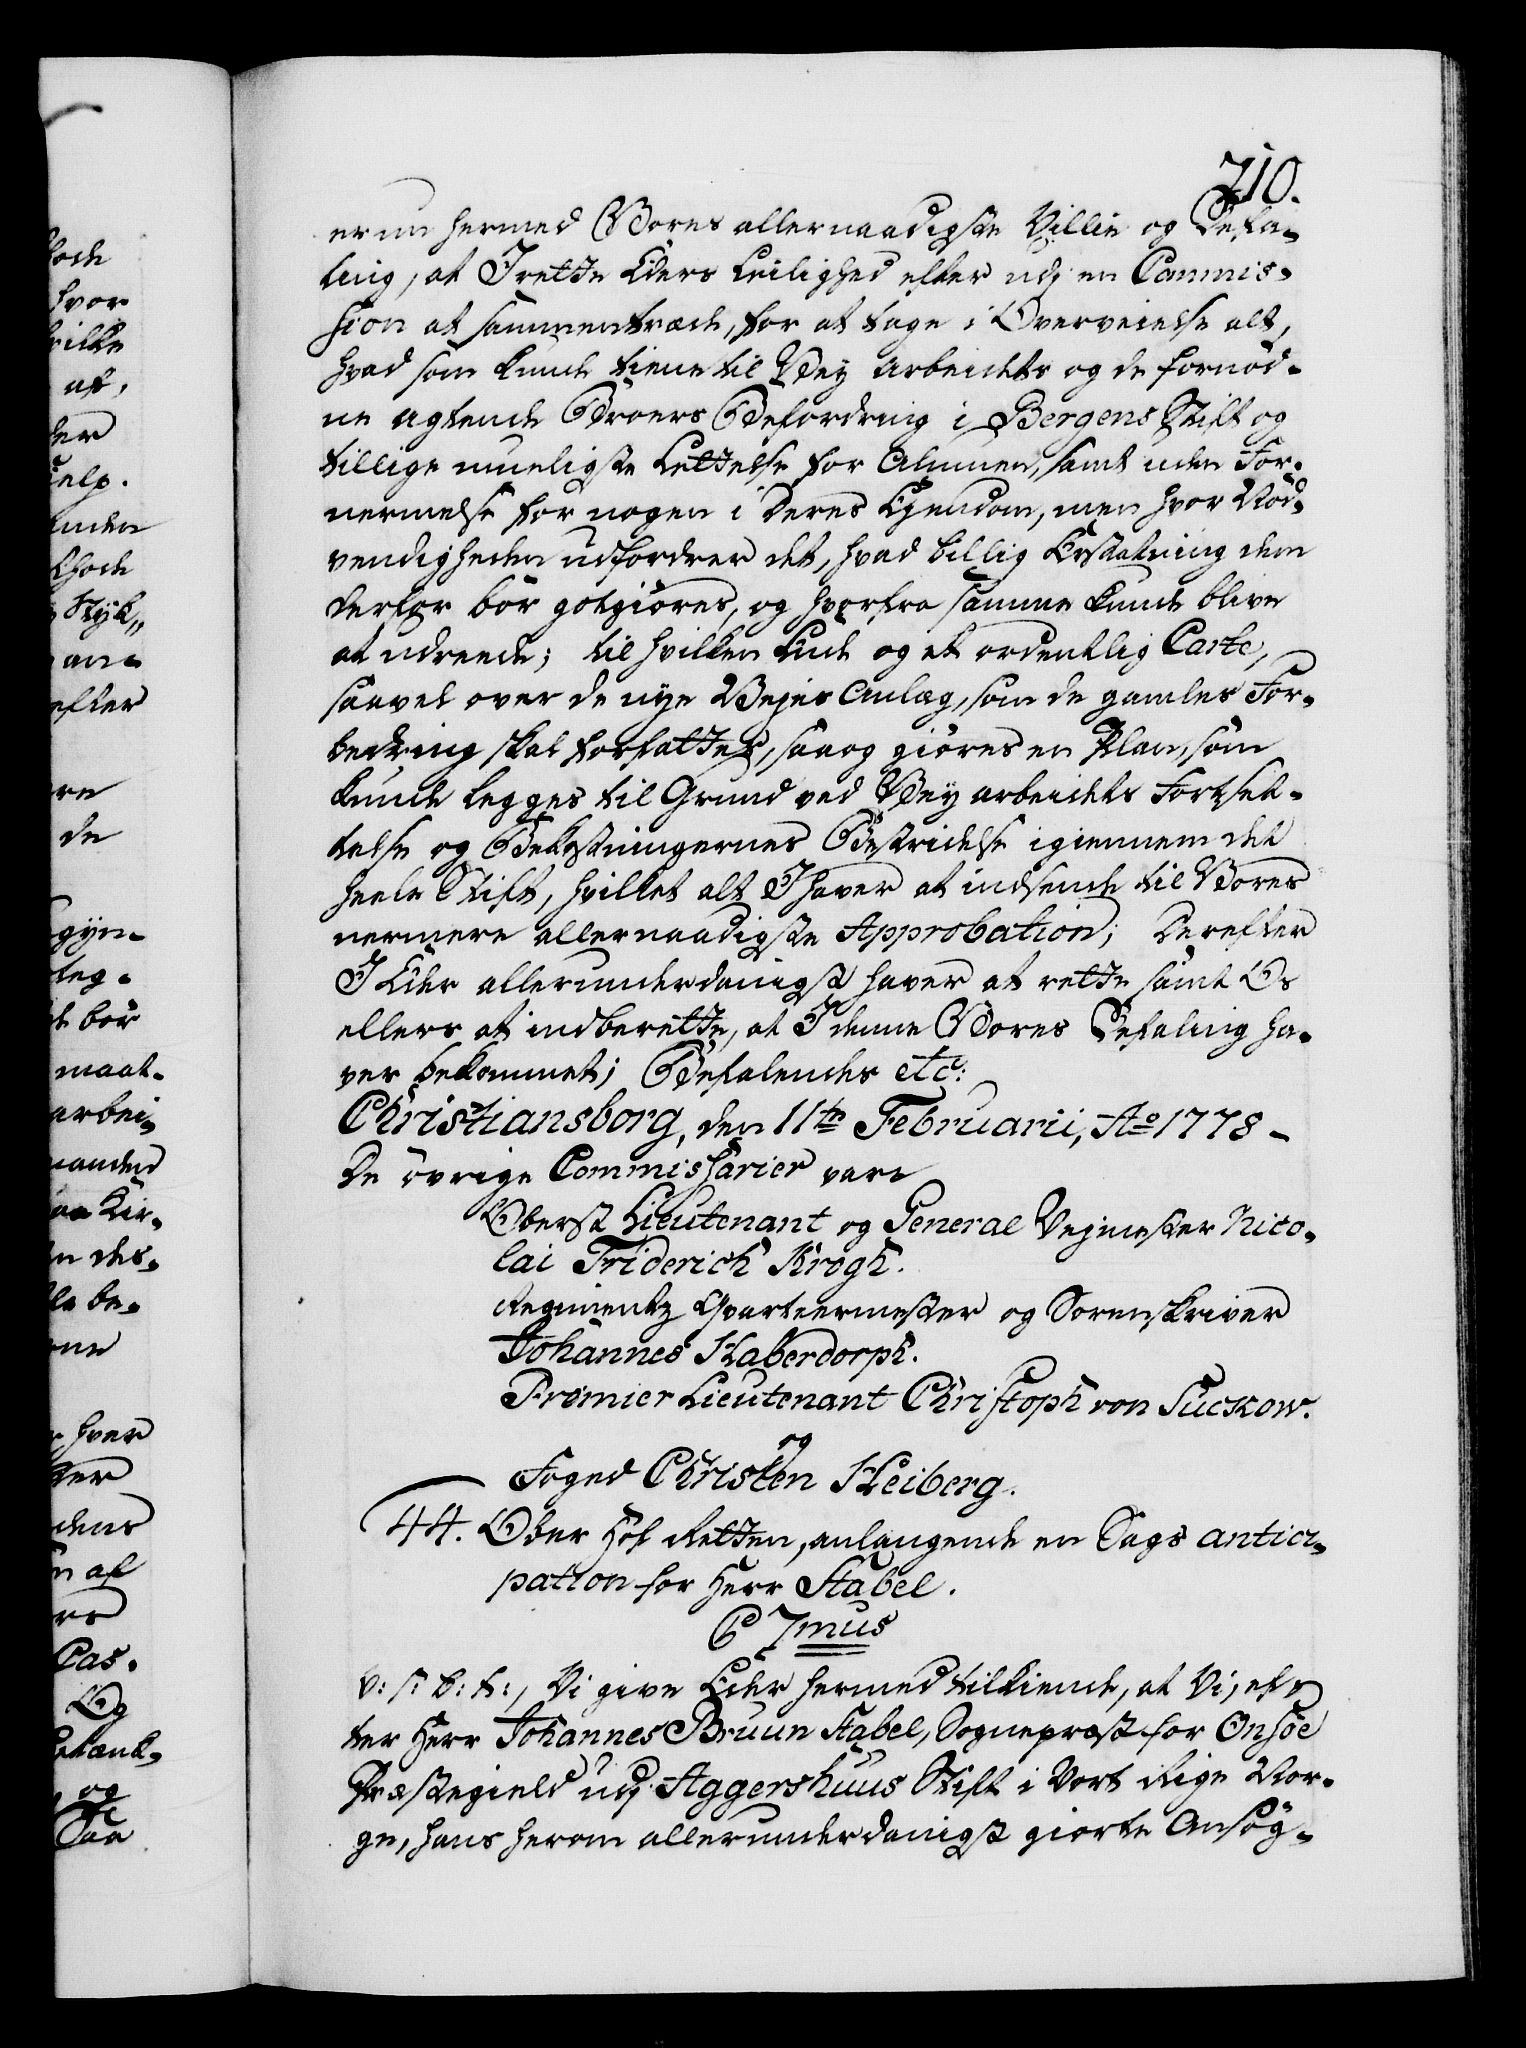 710.
er nu hermed Vores allernaadigste Villie og Befa-
ling, at I rette Eders Leilighed efter udj en Commis-
sion at sammentræde, for at tage i Overveielse alt,
hvad som kunde tiene til Vey Arbeidets og de fornød-
ne agtende Broers Befordring i Bergens Stift og
tillige mueligste Lettelse for Almuen, samt uden For-
nermelse for nogen i deres Ejendom, men hvor Nød-
vendigheden udfordrer det, hvad billig Erstatning dem
derfor bør godgiøres, og hvorfra samme kunde blive
at udreede; til hvilken Ende og et ordentlig Carte,
saavel over de nye Vejes Anlæg, som de gamles For-
bedring skal forfattes, saa og giøres en Plan, som
kunde legges til Grund ved Vey arbeidets Fortset-
telse og Bekostningernes Bestridelse igiennem det
heele Stift, hvilket alt I haver at indsende til Vores
nermere allernaadigste Approbation; Derefter
I Eder allerunderdanigst haver at rette samt Os
ellers at indberette, at I denne Vores Befaling ha-
ver bekommet; Befalendes etc:
Christiansborg, den 11te Februarii, Ao 1778 -
De øvrige Commissarier vare
Oberst Lieutenant og General Vejmester Nico-
lai Friderich Krogh.
Regiments Qvarteermester og Sorenskriver
Johannes Haberdorph.
Premier Lieutenant Christoph von Suckow.
og
Foged Christen Heiberg.
44. Ober Hof Retten, anlangende en Sags antici-
pation for Herr Stabel.
C 7mus
V: S: B: T:, Vi give Eder hermed tilkiende, at Vi, ef-
ter Herr Johannes Bruun Stabel, Sognepræst for Onsøe
Præstegield udj Aggershuus Stift i Vort Rige Nor-
ge, hans herom allerunderdanigst giorte Ansøg-